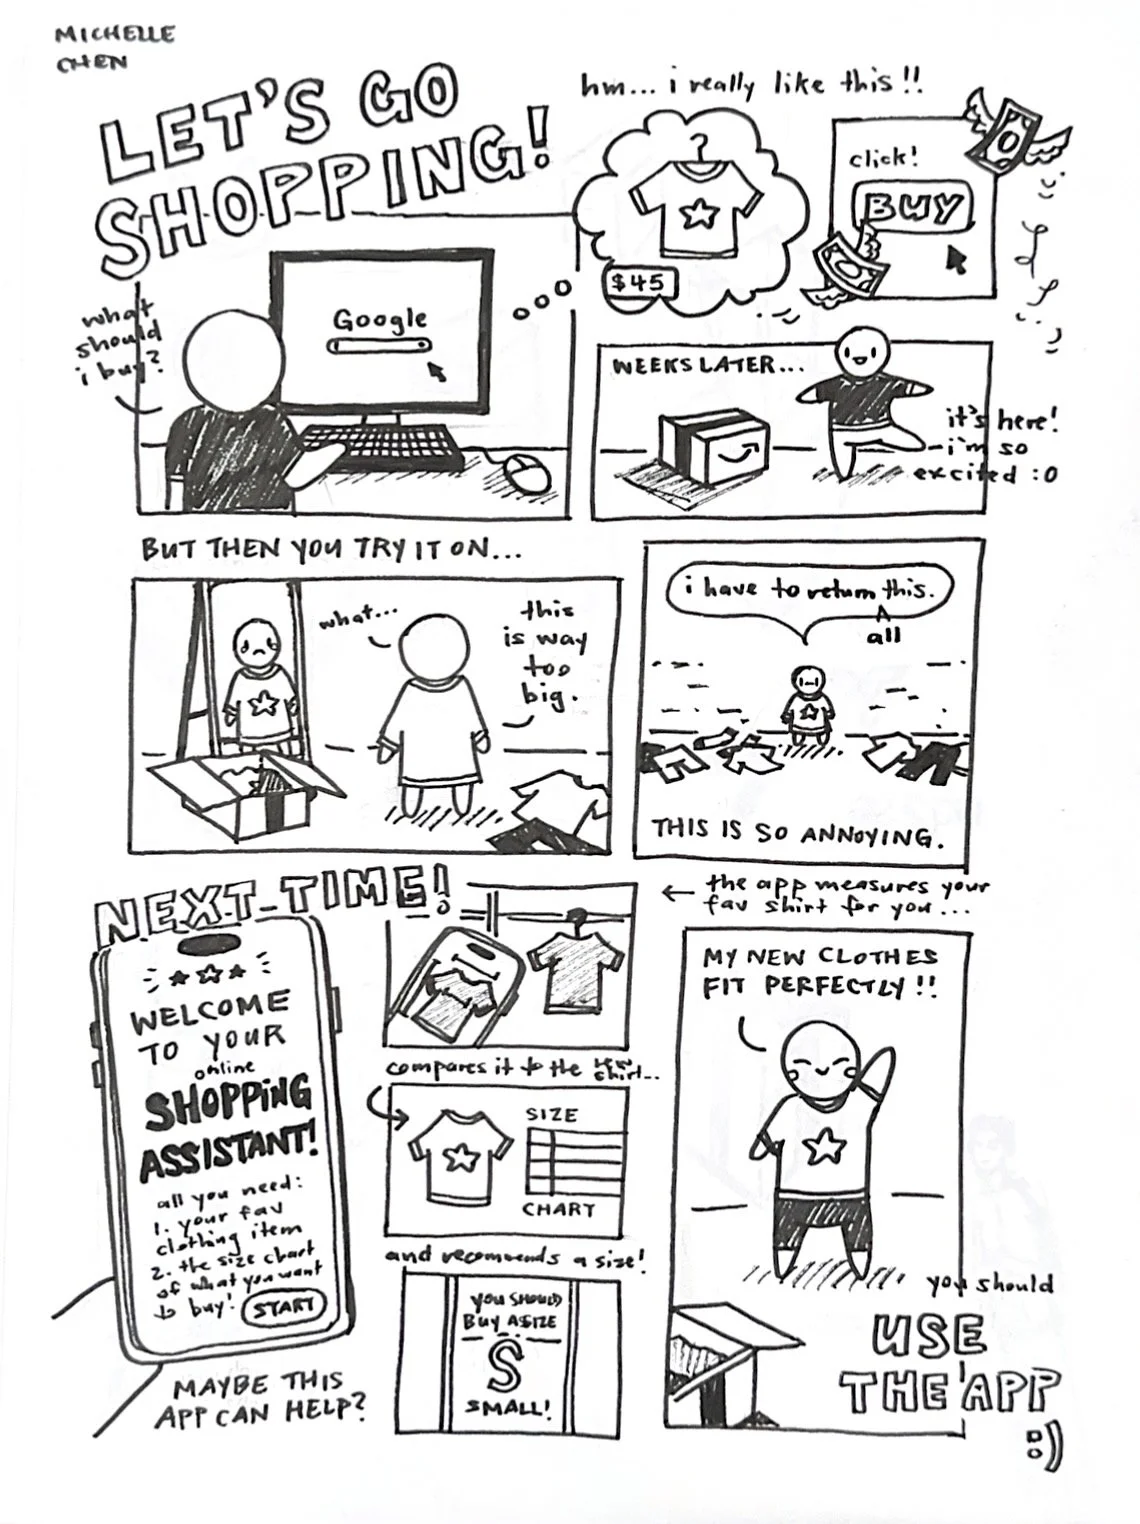 MICHELLE
CHEN
LET'S GO
SHOPPING!
what
should
i buy?
Google
hm... i really like this!!
$45
click!
BUY
WEEKS LATER...
it's here!
i'm so
excited :O
BUT THEN YOU TRY IT ON...
what...
this
is way
too
big.
i have to return this.
^
all
THIS IS SO ANNOYING.
NEXT TIME!
WELCOME
TO YOUR
online
SHOPPING
ASSISTANT!
all you need:
1. your fav
clothing item
2. the size chart
of what you want
to buy!
START
MAYBE THIS
APP CAN HELP?
← the app measures your
fav shirt for you...
compares it to the new
shirt...
SIZE
CHART
and recommends a size!
YOU SHOULD
BUY A SIZE
S
SMALL!
MY NEW CLOTHES
FIT PERFECTLY!!
you should
USE
THE APP
:)